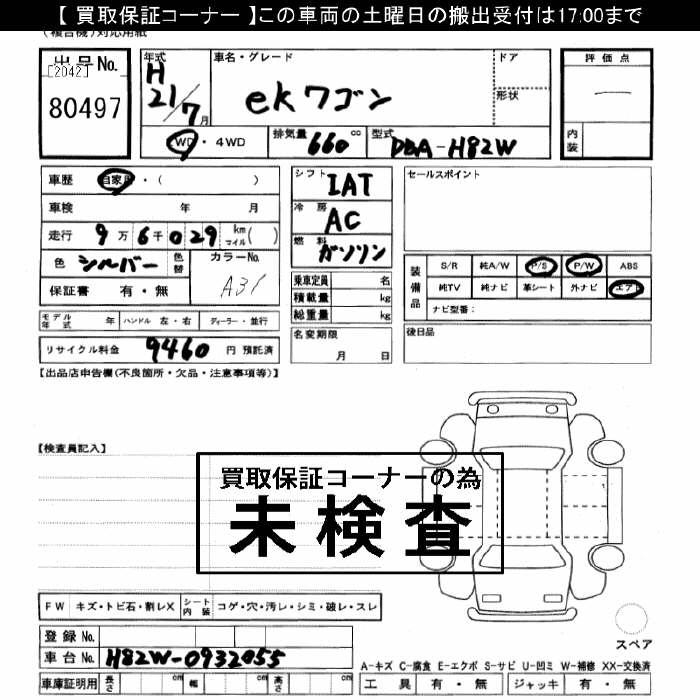 【 買取保証コーナー 】この車両の土曜日の搬出受付は17:00まで
(複合機)対応用紙
出品No.
[2042]
80497
年式
H
21/7月
車名・グレード
ekワゴン
ドア
形状
評価点
―
内装
2WD・4WD
排気量 660 cc
型式 DBA-H82W
車歴 自家用・( )
車検 年 月
走行 9万6千029 km マイル( )
色 シルバー 色替
カラーNo.
A31
保証書 有・無
シフト IAT
冷房 AC
燃料 ガソリン
乗車定員 名
積載量 kg
総重量 kg
セールスポイント
装備品
S/R 純A/W P/S P/W ABS
純TV 純ナビ 革シート 外ナビ エアB
ナビ型番:
モデル年式 年 ハンドル 左・右 ディーラー・並行
リサイクル料金 9460 円 預託済
名変期限
月 日
後日品
【出品店申告欄(不良箇所・欠品・注意事項等)】
【検査員記入】
買取保証コーナーの為
未検査
FW キズ・トビ石・割レX シート内装 コゲ・穴・汚レ・シミ・破レ・スレ
登録No.
車台No. H82W-0932055
車庫証明用 長さ cm 幅 cm 高さ cm
スペア
A-キズ C-腐食 E-エクボ S-サビ U-凹ミ W-補修 XX-交換済
工具 有・無 ジャッキ 有・無